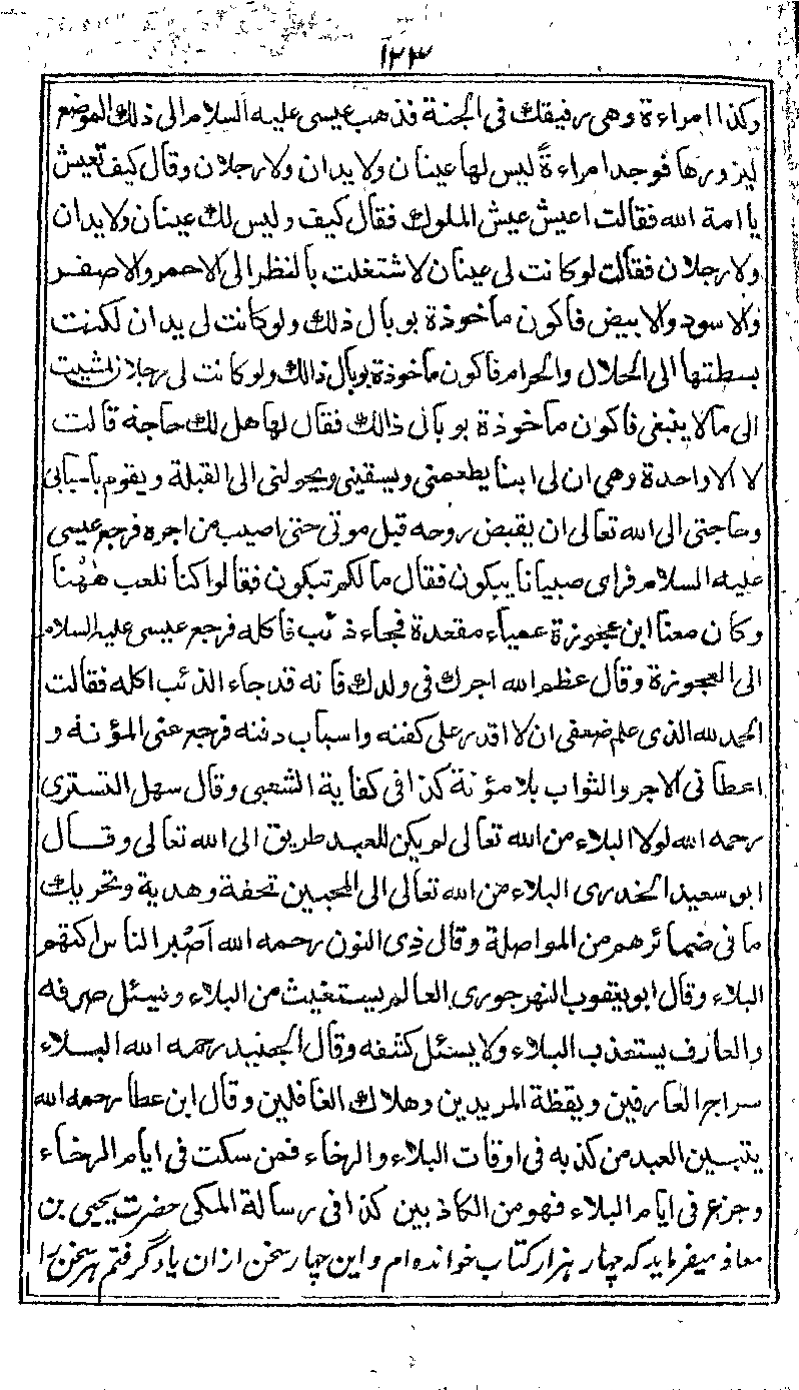 ١٢٣
وكذا امراءة وهى رفيقك فى الجنة فذهب عيسى عليه السلام الى ذلك الموضع
ليزورها فوجد امراءةً ليس لها عينان ولا يدان ولا رجلان وقال كيف تعيش
يا امة الله فقالت اعيش عيش الملوك فقال كيف وليس لك عينان ولا يدان
ولا رجلان فقالت لو كانت لى عينان لاشتغلت بالنظر الى الاحمر والاصفر
والاسود والابيض فاكون ماخوذة بوبال ذلك ولو كانت لى يدان لكنت
بسطتها الى الحلال والحرام فاكون ماخوذة بوبال ذالك ولو كانت لى رجلان لمشيت
الى ما لا ينبغى فاكون ماخوذة بوبال ذالك فقال لها هل لك حاجة قالت
لا الا واحدة وهى ان لى ابنا يطعمنى ويسقينى ويحولنى الى القبلة ويقوم باسبابى
وحاجتى الى الله تعالى ان يقبض روحه قبل موتى حتى اصيب من اجره فرجع عيسى
عليه السلام فراى صبيانا يبكون فقال ما لكم تبكون فقالوا كنا نلعب ههنا
وكان معنا ابن عجوزة عمياء مقعدة فجاء ذئب فاكله فرجع عيسى عليه السلام
الى العجوزة وقال عظم الله اجرك فى ولدك فانه قد جاء الذئب اكله فقالت
الحمد لله الذى علم ضعفى ان لا اقدر على كفنه واسباب دفنه فرجع عنى المؤنة و
اعطانى الاجر والثواب بلا مؤنة كذا فى كفاية الشعبى وقال سهل التسترى
رحمه الله لولا البلاء من الله تعالى لم يكن للعبد طريق الى الله تعالى وقال
ابو سعيد الخدرى البلاء من الله تعالى الى المحبين تحفة وهدية وتحريك
ما فى ضمائرهم من المواصلة وقال ذى النون رحمه الله اصبر الناس اكتمهم
البلاء وقال ابو يعقوب النهرجورى العالم يستغيث من البلاء ويسئل صرفه
والعارف يستعذب البلاء ولا يسئل كشفه وقال الجنيد رحمه الله البلاء
سراج العارفين ويقظة المريدين وهلاك الغافلين وقال ابن عطا رحمه الله
يتبين العبد من كذبه فى اوقات البلاء والرخاء فمن سكت فى ايام الرخاء
وجزع فى ايام البلاء فهو من الكاذبين كذا فى رسالة المكى حضرت يحيى بن
معاذ ميفرمايد كه چهار هزار كتاب خوانده ام و اين چهار سخن از ان ياد گرفتم هر سخن را